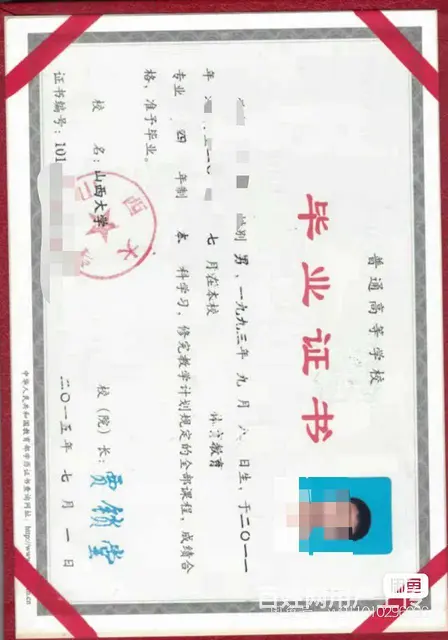 普通高等学校
毕业证书
性别 男、一九九三年 九 月 六 日生，于二〇一一
年 七 月在本校 体育教育
专业 四 年制 本 科学习，修完教学计划规定的全部课程，成绩合
格，准予毕业。
校 名：山西大学 校（院）长：贾锁堂
证书编号：101 二〇一五年 七 月 一 日
中华人民共和国教育部学历证书查询网址：http://www.